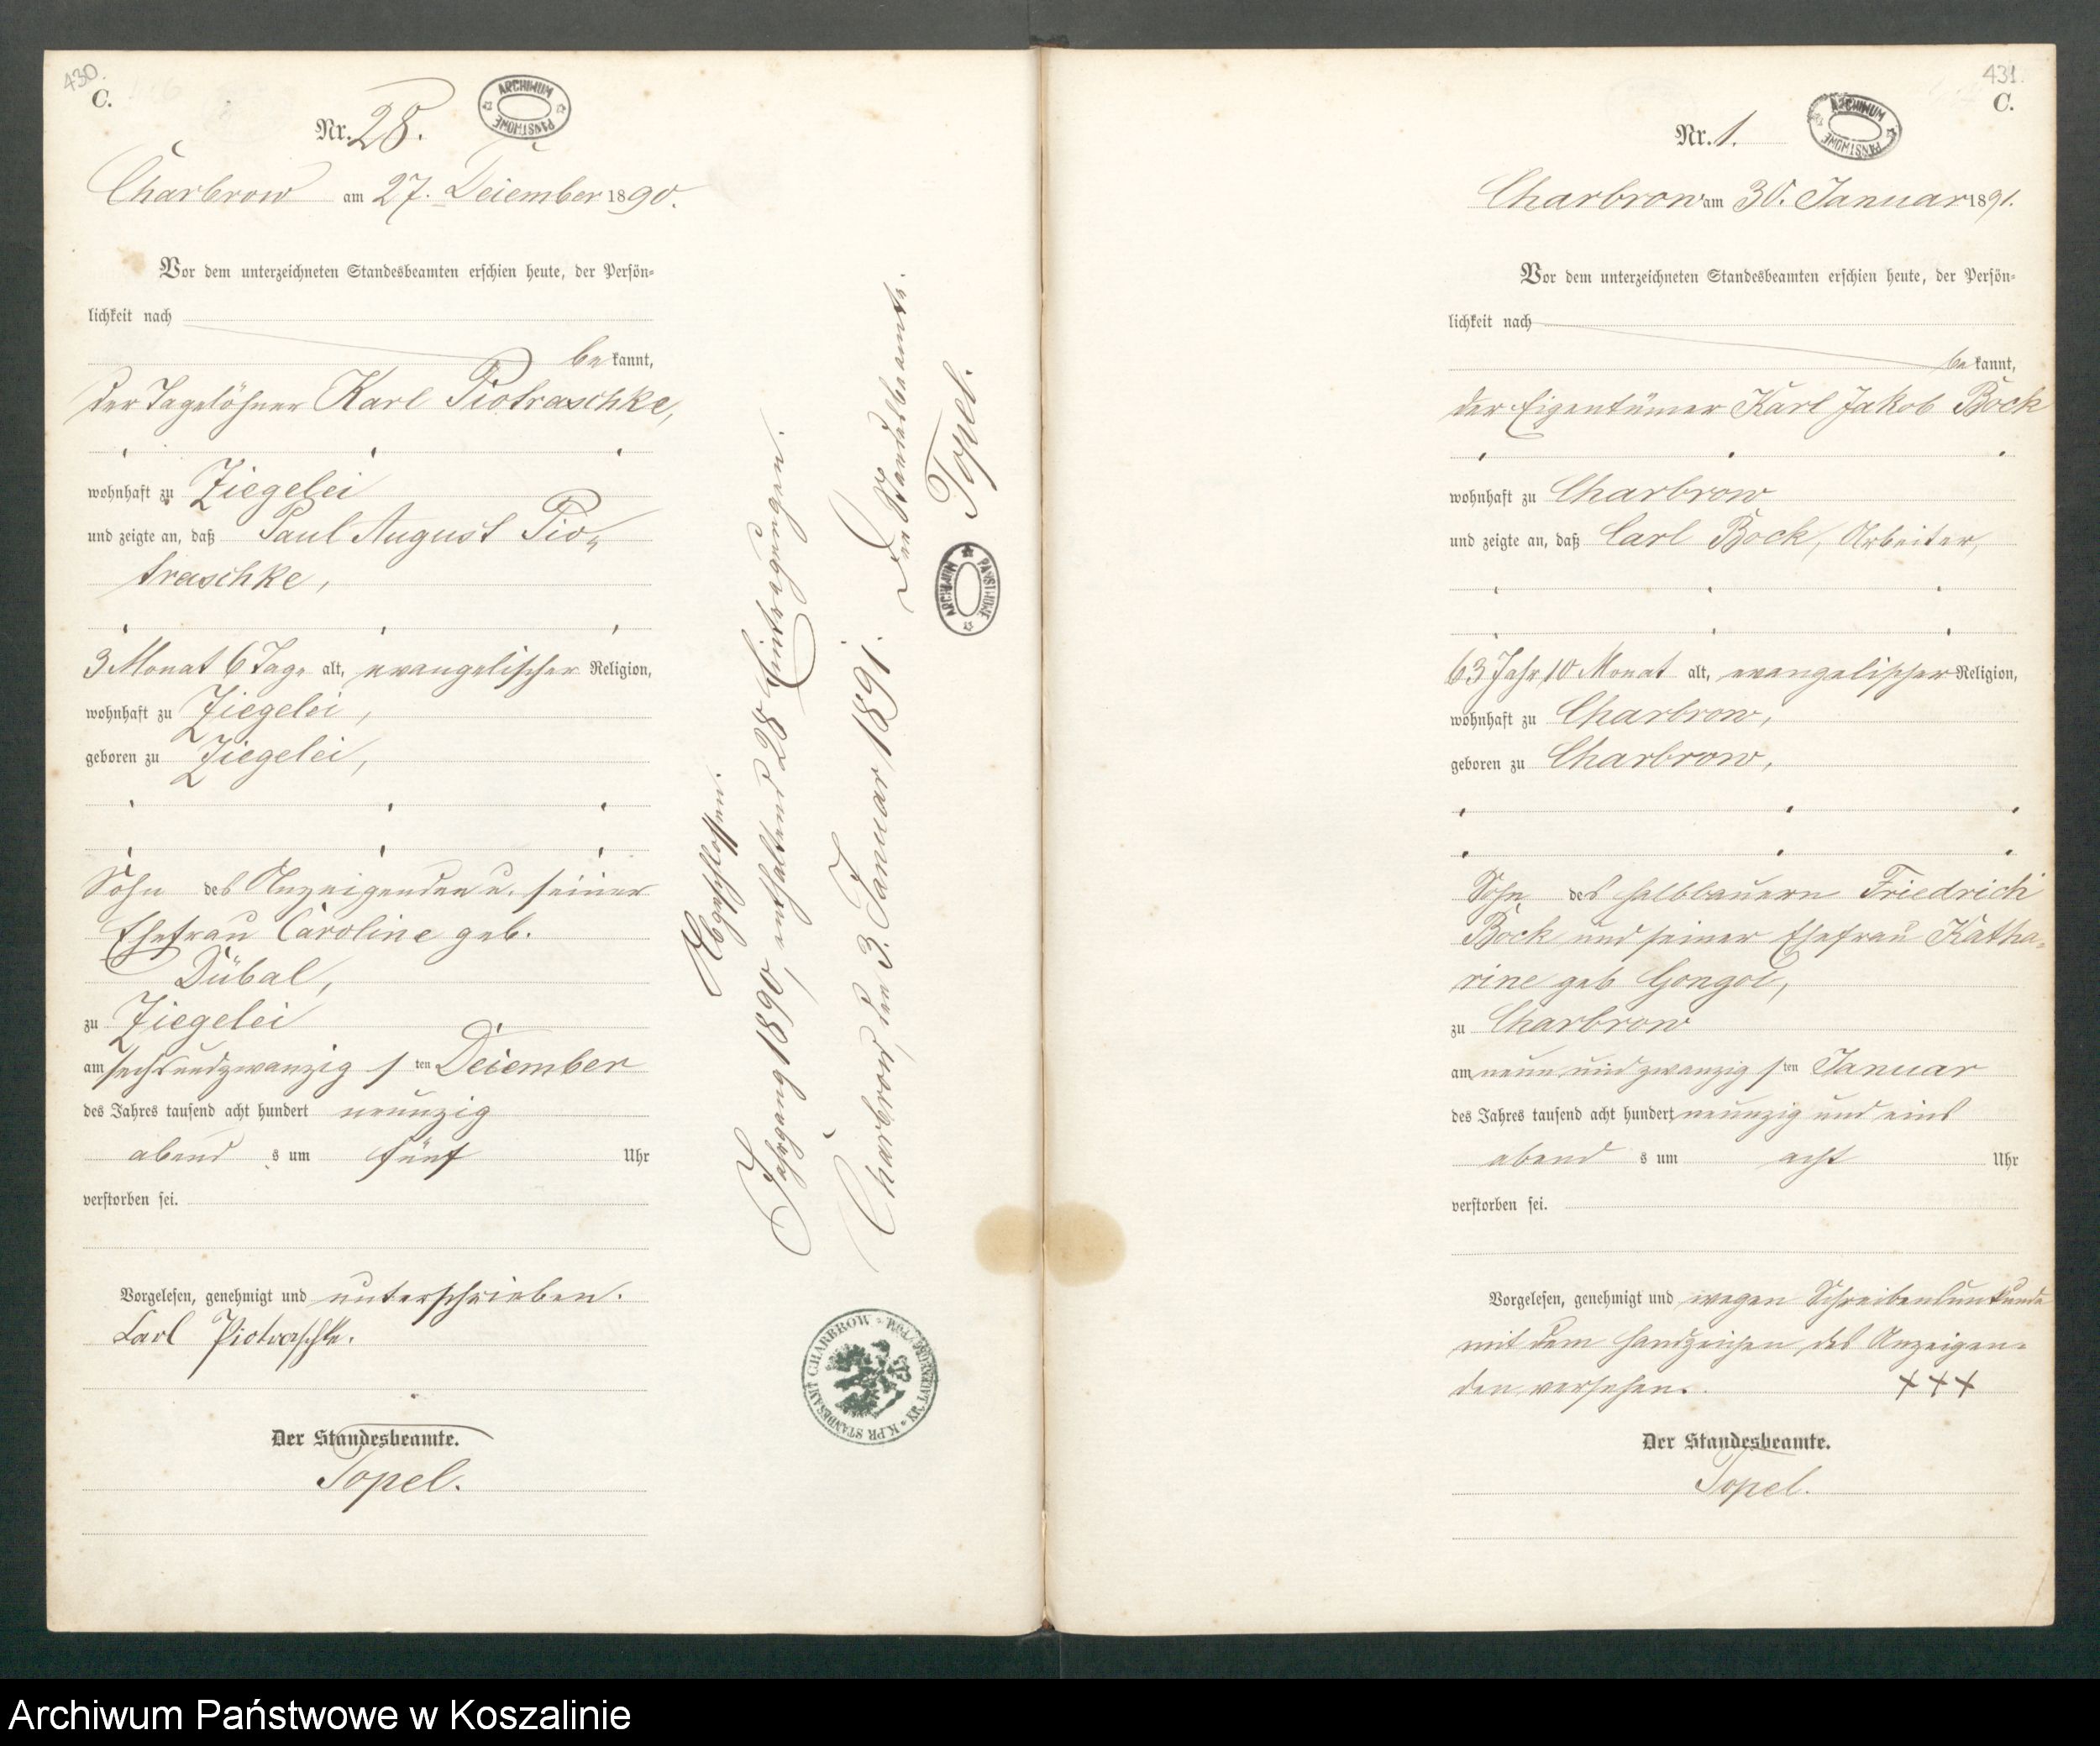 430.
C.
ARCHIWUM PAŃSTWOWE
Nr. 28.
Charbrow am 27. December 1890.
Vor dem unterzeichneten Standesbeamten erschien heute, der Persön-
lichkeit nach
bekannt,
der Tagelöhner Karl Piotraschke,
wohnhaft zu Ziegelei
und zeigte an, daß Paul August Pio-
traschke,
3 Monat 6 Tage alt, evangelischer Religion,
wohnhaft zu Ziegelei,
geboren zu Ziegelei,
Sohn des Anzeigenden u. seiner
Ehefrau Caroline geb.
Dübal,
zu Ziegelei
am sechsundzwanzigsten December
des Jahres tausend acht hundert neunzig
abends um fünf Uhr
verstorben sei.
Vorgelesen, genehmigt und unterschrieben.
Carl Piotraschke.
Der Standesbeamte.
Topel.
Abgeschlossen.
Jahrgang 1890, enthaltend 28 Eintragungen.
Charbrow, den 3. Januar 1891.
Der Standesbeamte.
Topel.
ARCHIWUM PAŃSTWOWE
K. PR. STANDESAMT CHARBROW
431.
C.
ARCHIWUM PAŃSTWOWE
Nr. 1.
Charbrow am 30. Januar 1891.
Vor dem unterzeichneten Standesbeamten erschien heute, der Persön-
lichkeit nach
bekannt,
der Eigentümer Karl Jakob Bock
wohnhaft zu Charbrow
und zeigte an, daß Carl Bock, Arbeiter,
63 Jahr 10 Monat alt, evangelischer Religion,
wohnhaft zu Charbrow,
geboren zu Charbrow,
Sohn des Halbbauern Friedrich
Bock und seiner Ehefrau Katha-
rine geb Gongol,
zu Charbrow
am neun und zwanzigsten Januar
des Jahres tausend acht hundert neunzig und eins
abends um acht Uhr
verstorben sei.
Vorgelesen, genehmigt und wegen Schreibensunkunde
mit dem Handzeichen des Anzeigen-
den versehen. +++
Der Standesbeamte.
Topel.
Archiwum Państwowe w Koszalinie